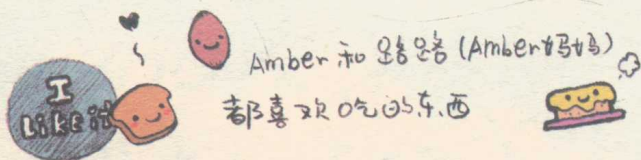 I
Like it
Amber 和 路路 (Amber 妈妈)
都喜欢吃的东西